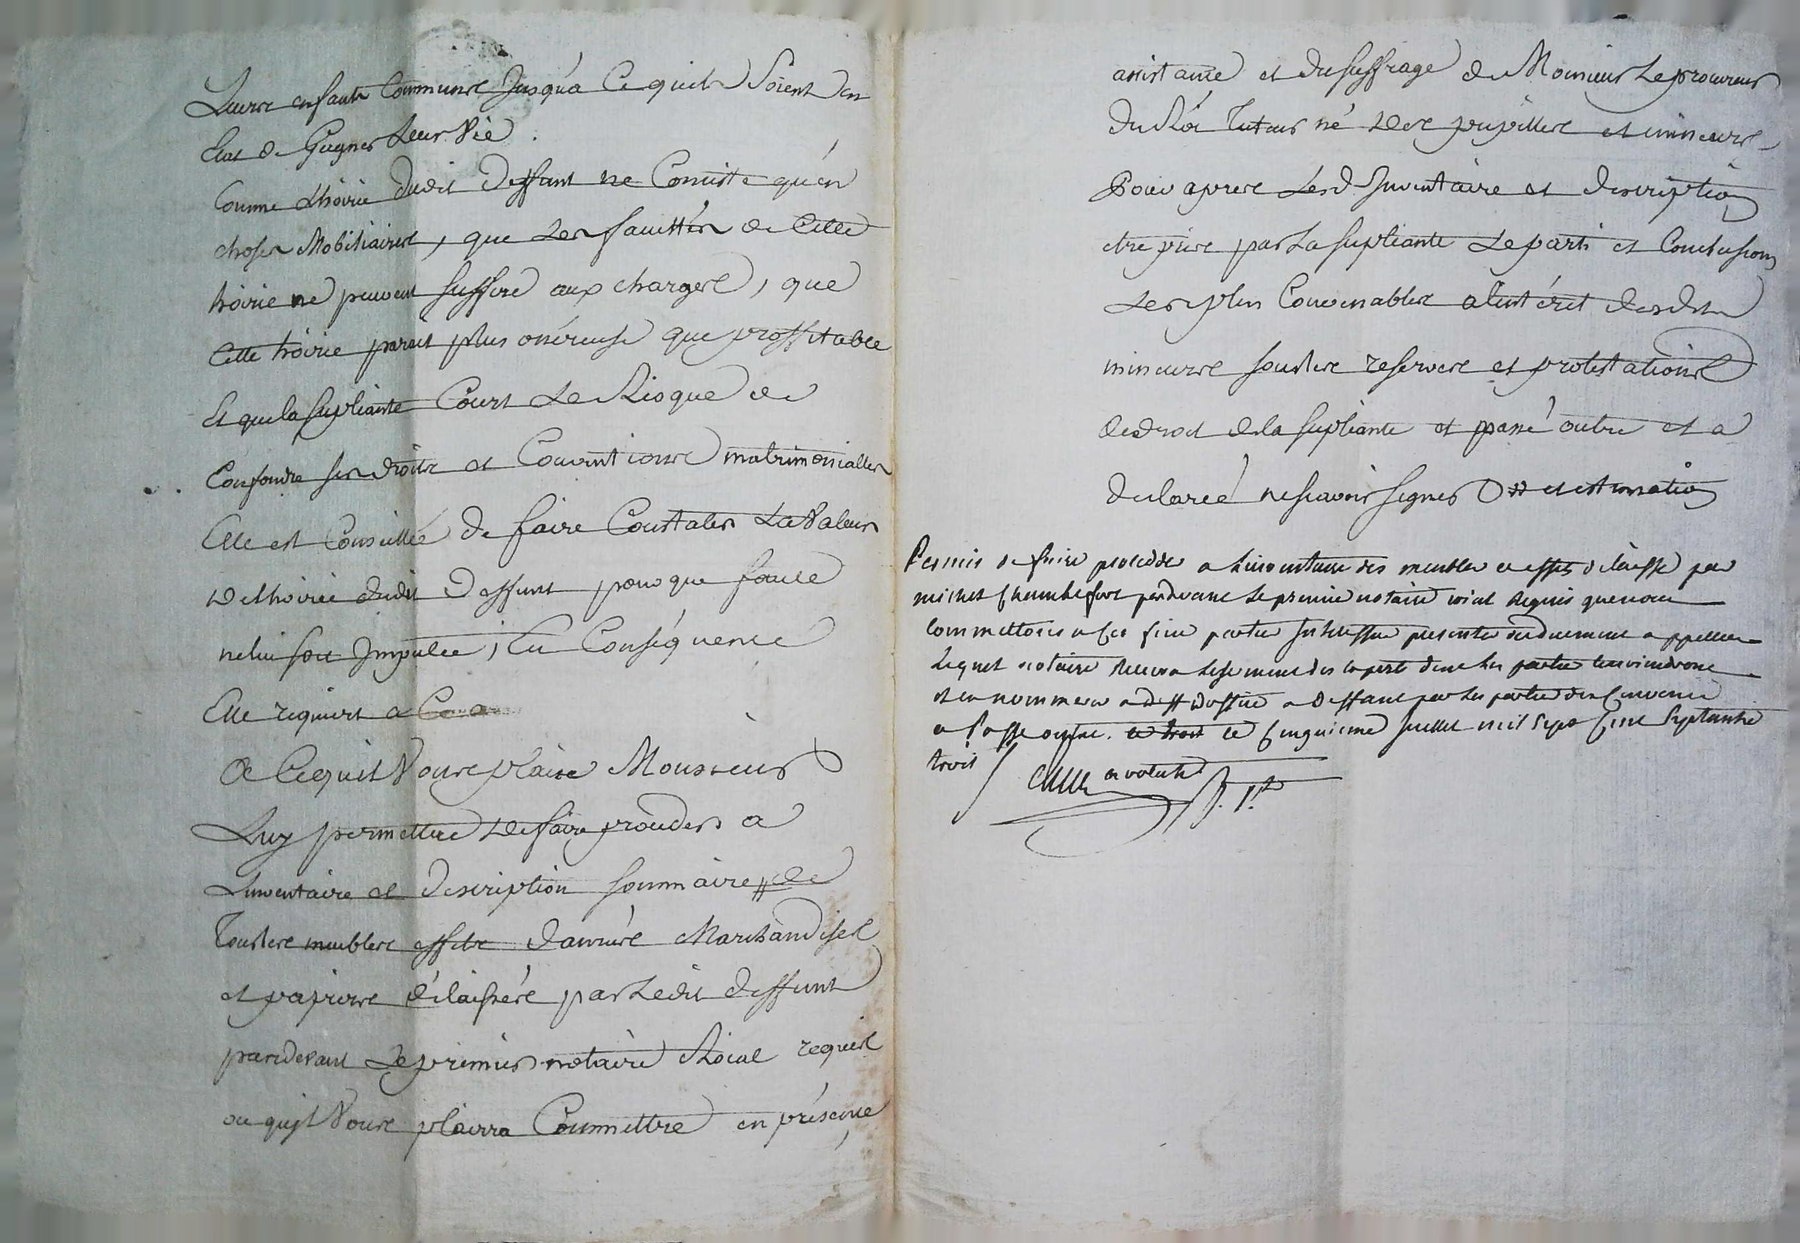 Leurs enfants Communs Jusqu'a Ce quils Soient en
Etat de Gagner Leur Vie.
Comme Lhoirie dudit Deffunt ne Consiste qu'en
choses Mobiliaires, que Les facultés de Cette
hoirie ne peuvent suffire aux charges, que
Cette hoirie paroit plus onéreuse que proffitable
Et que la supliante Court Le Risque de
Confondre ses droits et Conventions matrimonialles
Elle est Conseillée de faire Constater La Valeur
De Lhoirie dudit Deffunt pour que faute
ne lui soit Imputée, En Conséquence
Elle requiert a
A Ce quil Vous plaise Monsieur
Luy permettre de faire proceder a
Linventaire et description sommaire # de
Tous les meubles effets danrés Marchandises
et papiers délaissés par Ledit deffunt
pardevant Le premier notaire Roial requis
ou quil Vous plairra Commettre en présence
assistance et du suffrage de Monsieur Le procureur
du Roi Tuteur né des pupilles et mineurs
Pour apres Led. Inventaire et description
etre pris par La supliante Le parti et Conclusions
Les plus Convenables a lintérét desdits
mineurs sous les reserves et protestations
de droit de la supliante et passé outre et a
declaré ne scavoir signer # et estimation
Permis de faire proceder a Linventaire des meubles et effets délaissé par
michel Chambefort pardevant Le premier notaire roial Requis que nous
Commettons a Ces fins parties Interessées presentes ou duement appellées
Lequel notaire Recevra Le serment des experts dont Les parties Conviendront
et en nommera d'office a deffaut par Les parties den Convenir
a passé outre. Ce Cinquieme Juillet mil Sept Cent Septante
trois